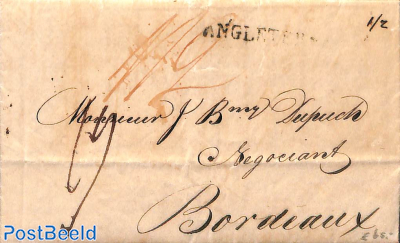 1/2
ANGLETERRE
Monsieur J Bmy Dupuch
Negociant
Bordeaux
£65.-
PostBeeld